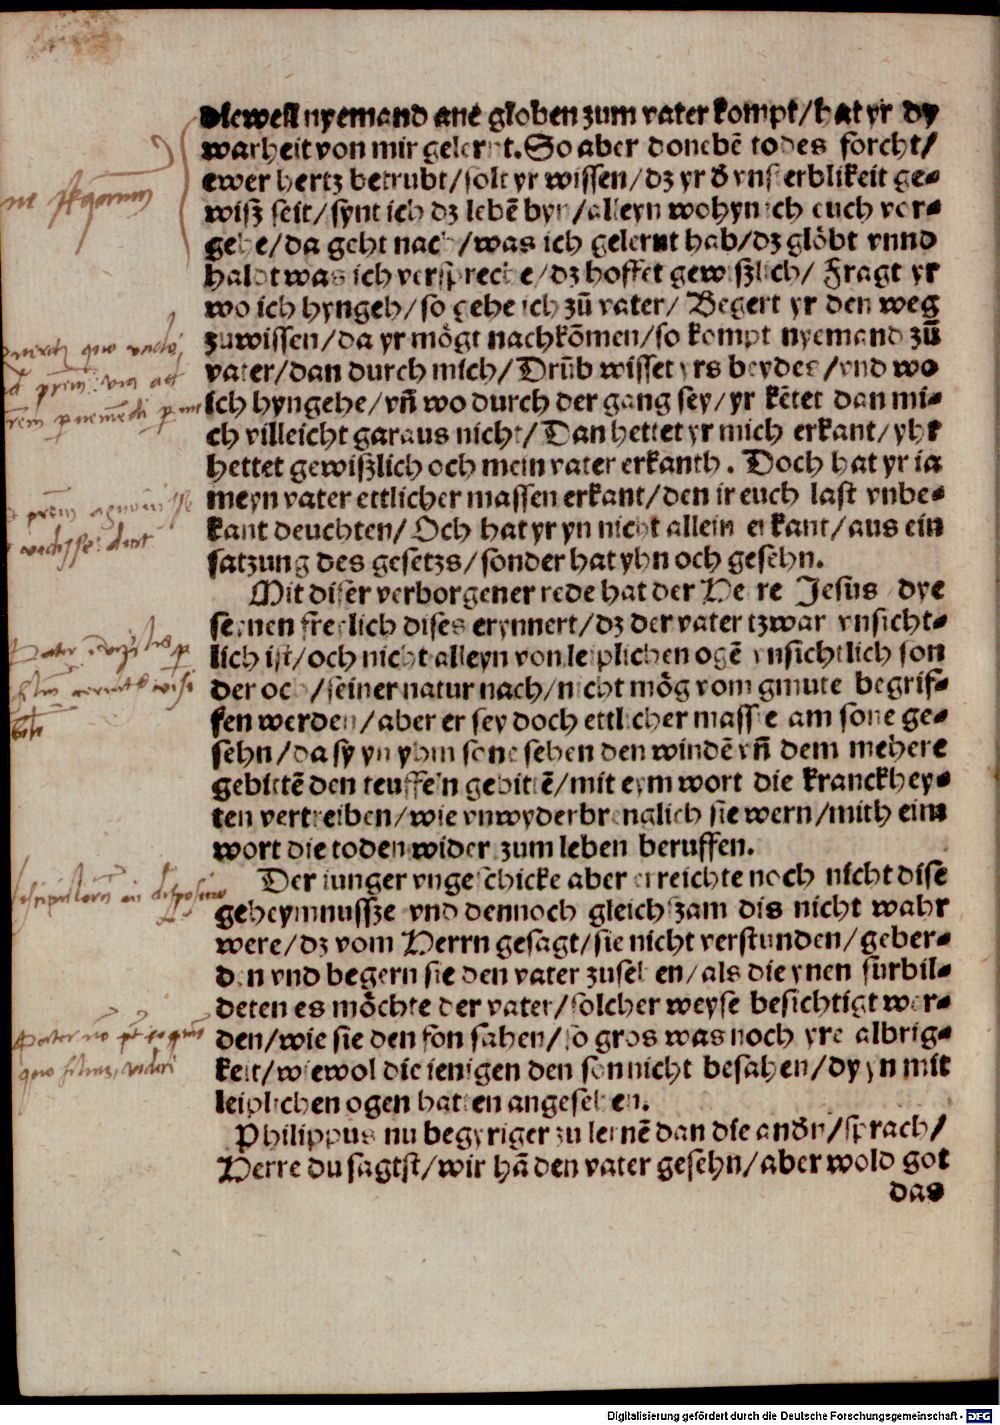 diewell nyemand ane globen zum vater kompt/hat yr dy
warheit von mir gelernt. So aber donebē todes forcht/
ewer hertz betrubt/solt yr wissen/dz yr d vnsterblikeit ge-
wisz seit/synt ich dz lebē byn/alleyn wohyn ich euch vor-
gehe/da geht nach/was ich gelernt hab/dz glöbt vnnd
haldt was ich verspreche/dz hoffet gewiszlich/ Fragt yr
wo ich hyngeh/so gehe ich zū vater/ Begert yr den weg
zuwissen/da yr mögt nachkōmen/so kompt nyemand zū
vater/dan durch mich/Drūb wisset yrs beydes/vnd wo
ich hyngehe/vn̄ wo durch der gang sey/yr kētet dan mi-
ch villeicht garaus nicht/Dan hettet yr mich erkant/yhr
hettet gewiszlich och mein vater erkanth. Doch hat yr ia
meyn vater ettlicher massen erkant/den ir euch last vnbe-
kant deuchten/Och hat yr yn nicht allein erkant/aus ein
satzung des gesetzs/sonder hat yhn och gesehn.
Mit diser verborgener rede hat der Herre Jesus dye
seynen freylich dises erynnert/dz der vater tzwar vnsicht-
lich ist/och nicht alleyn von leiplichen ogē vnsichtlich son
der och/seiner natur nach/nicht mög vom gmute begrif-
fen werden/aber er sey doch ettlicher massē am sone ge-
sehn/da sy yn yhm sone sehen den windē vn̄ dem mehere
gebittē den teuffeln gebittē/mit eym wort die kranckhey-
ten vertreiben/wie vnwyderbrenglich sie wern/mith eim
wort die toden wider zum leben beruffen.
Der iunger vngeschicke aber erreichte noch nicht dise
geheymnusse vnd dennoch gleichszam dis nicht wahr
were/dz vom Herrn gesagt/sie nicht verstunden/geber-
den vnd begern sie den vater zusehen/als die ynen fürbil-
deten es möchte der vater/solcher weyse besichtigt wer-
den/wie sie den son sahen/so gros was noch yre albrig-
keit/wiewol die ienigen den son nicht besahen/dy yn mit
leiplichen ogen hatten angesehen.
Philippus nu begyriger zu lernē dan die andn/sprach/
Herre du sagtst/wir hā den vater gesehn/aber wold got
das
Digitalisierung gefördert durch die Deutsche Forschungsgemeinschaft - DFG